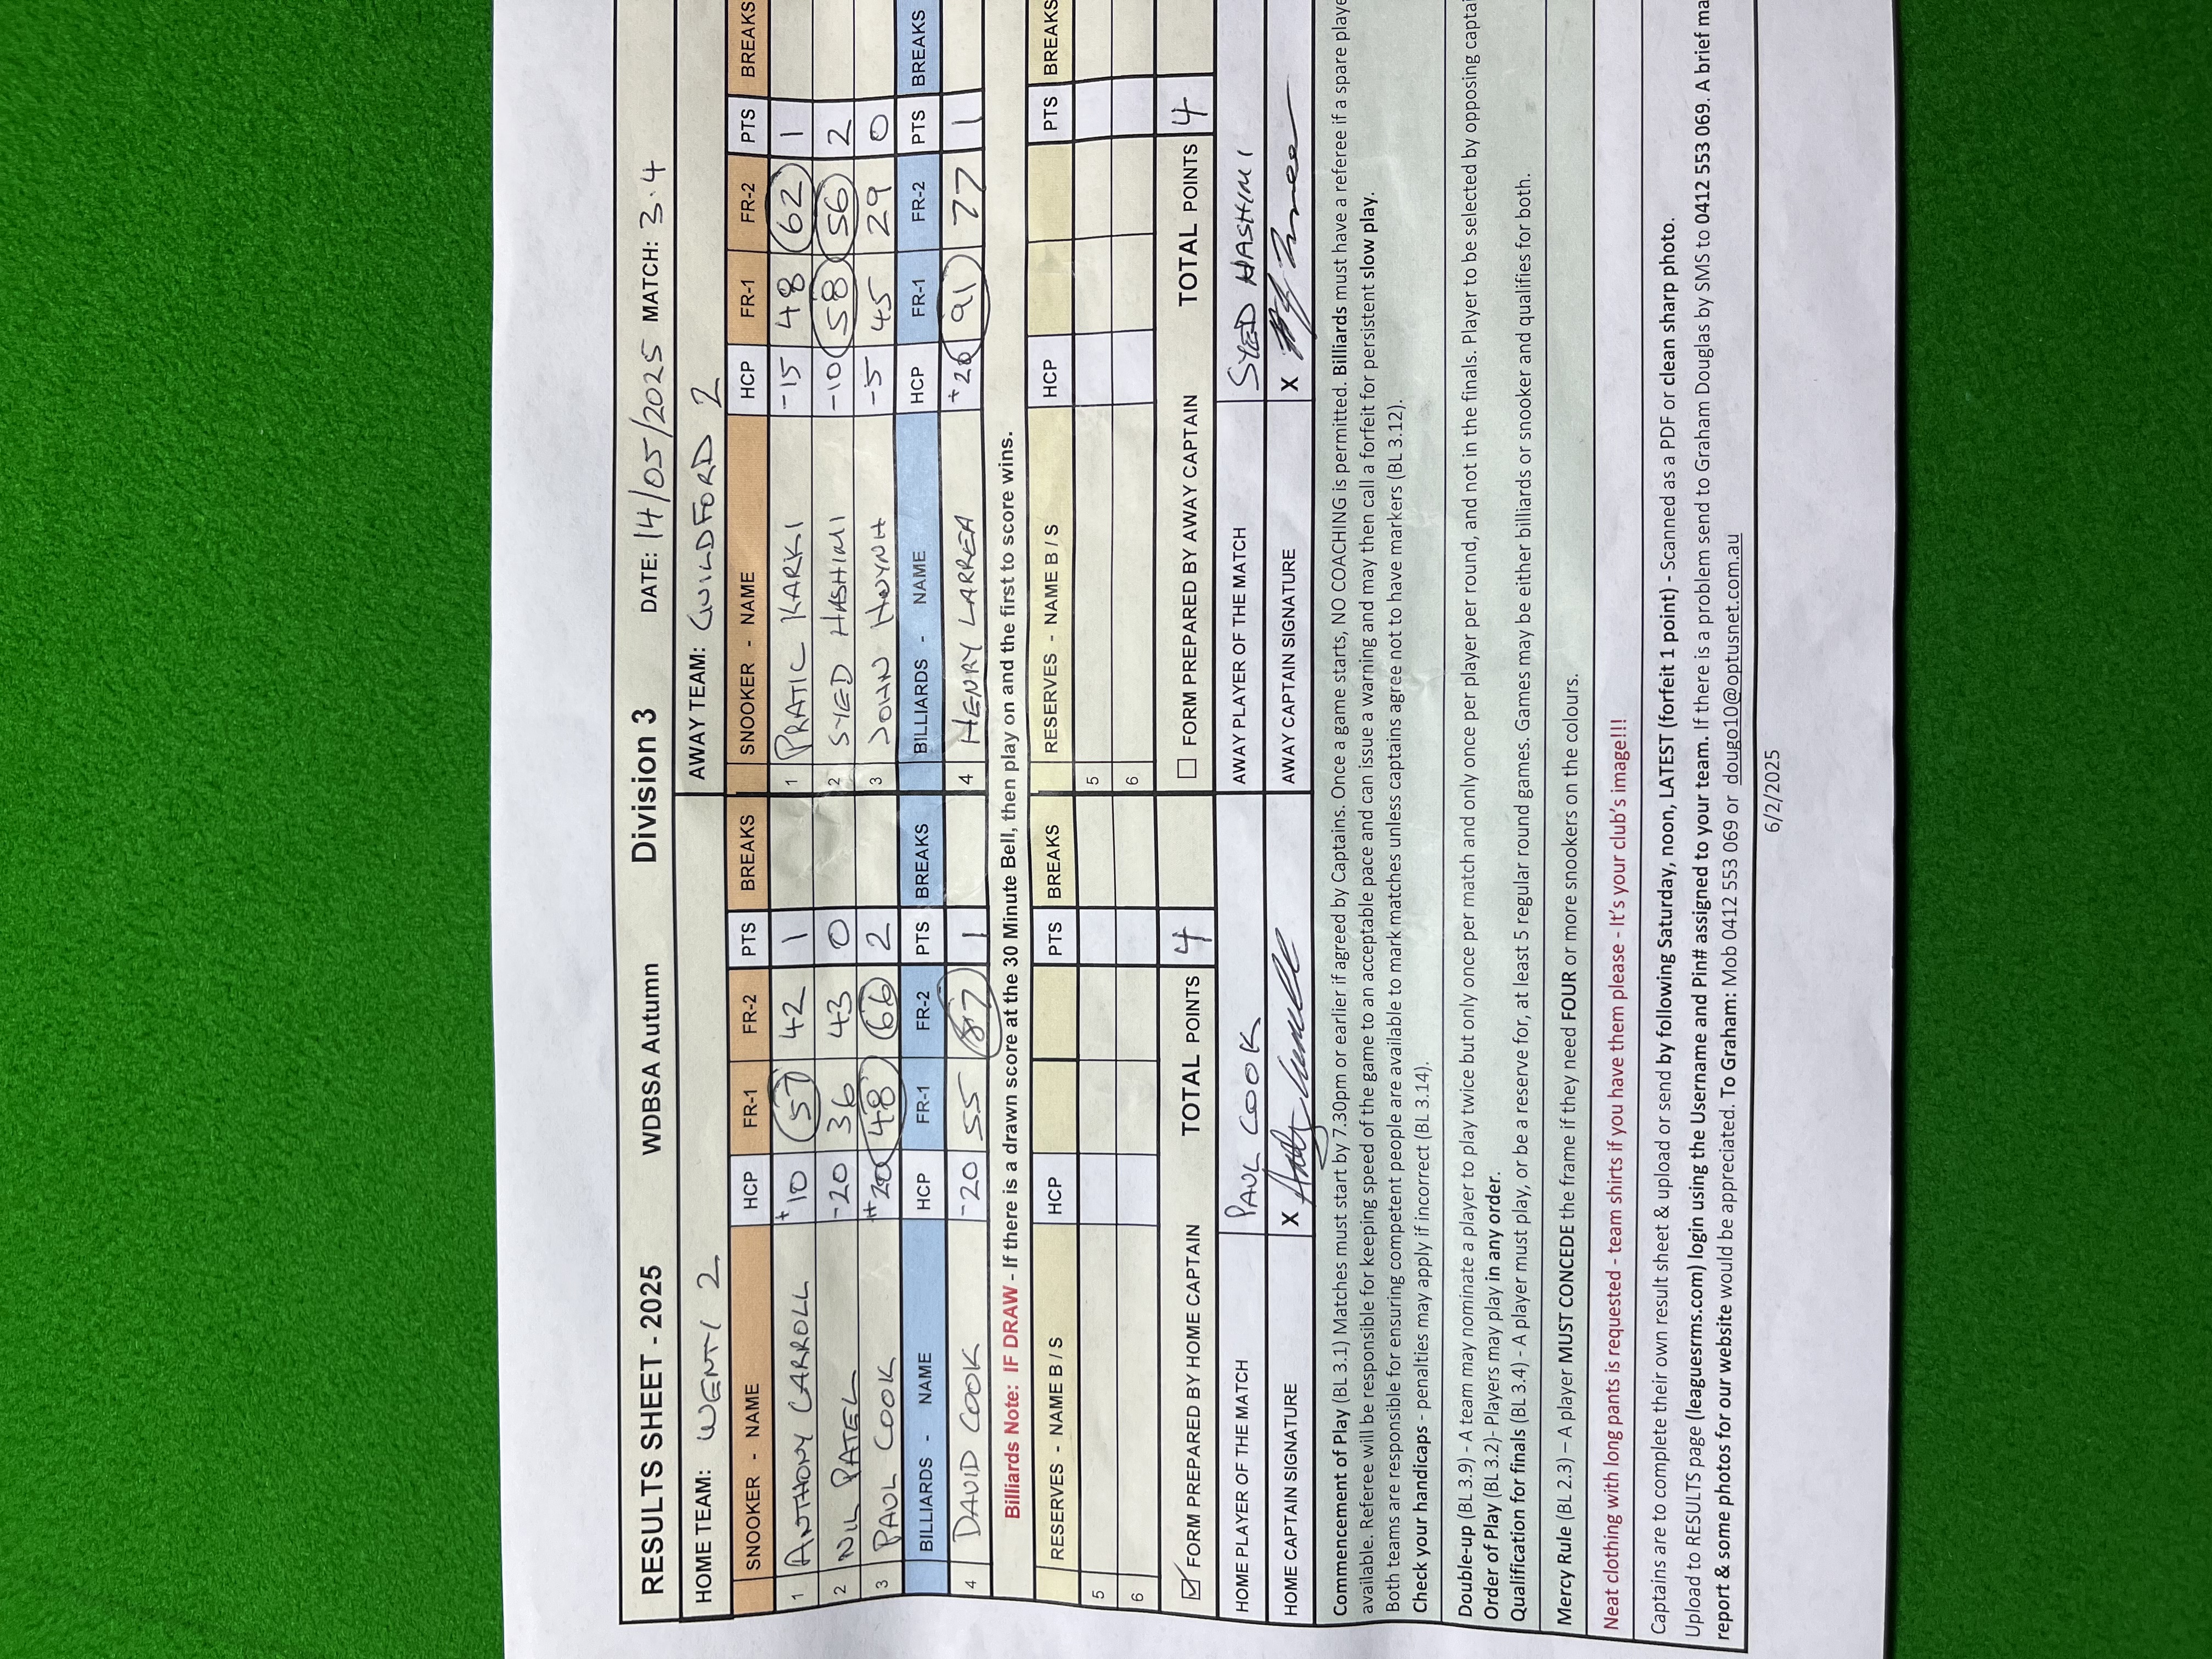 RESULTS SHEET - 2025 WDBSA Autumn Division 3 DATE: 14/05/2025 MATCH: 3.4
HOME TEAM: WENTY 2 AWAY TEAM: GUILDFORD 2
SNOOKER - NAME HCP FR-1 FR-2 PTS BREAKS SNOOKER - NAME HCP FR-1 FR-2 PTS BREAKS
1 ANTHONY CARROLL +10 57 42 1 1 PRATIC KARKI -15 48 62 1
2 NIL PATEL -20 36 43 0 2 SYED HASHIMI -10 58 56 2
3 PAUL COOK +20 48 66 2 3 JOHN HUYNH -5 45 29 0
BILLIARDS - NAME HCP FR-1 FR-2 PTS BREAKS BILLIARDS - NAME HCP FR-1 FR-2 PTS BREAKS
4 DAVID COOK -20 55 87 1 4 HENRY LARREA +20 91 77 1
Billiards Note: IF DRAW - If there is a drawn score at the 30 Minute Bell, then play on and the first to score wins.
RESERVES - NAME B / S HCP PTS BREAKS RESERVES - NAME B / S HCP PTS BREAKS
5 5
6 6
FORM PREPARED BY HOME CAPTAIN TOTAL POINTS 4 FORM PREPARED BY AWAY CAPTAIN TOTAL POINTS 4
HOME PLAYER OF THE MATCH PAUL COOK AWAY PLAYER OF THE MATCH SYED HASHIMI
HOME CAPTAIN SIGNATURE X AWAY CAPTAIN SIGNATURE X
Commencement of Play (BL 3.1) Matches must start by 7.30pm or earlier if agreed by Captains. Once a game starts, NO COACHING is permitted. Billiards must have a referee if a spare playe
available. Referee will be responsible for keeping speed of the game to an acceptable pace and can issue a warning and may then call a forfeit for persistent slow play.
Both teams are responsible for ensuring competent people are available to mark matches unless captains agree not to have markers (BL 3.12).
Check your handicaps - penalties may apply if incorrect (BL 3.14).
Double-up (BL 3.9) - A team may nominate a player to play twice but only once per match and only once per player per round, and not in the finals. Player to be selected by opposing captai
Order of Play (BL 3.2)- Players may play in any order.
Qualification for finals (BL 3.4) - A player must play, or be a reserve for, at least 5 regular round games. Games may be either billiards or snooker and qualifies for both.
Mercy Rule (BL 2.3) – A player MUST CONCEDE the frame if they need FOUR or more snookers on the colours.
Neat clothing with long pants is requested - team shirts if you have them please - It's your club's image!!!
Captains are to complete their own result sheet & upload or send by following Saturday, noon, LATEST (forfeit 1 point) - Scanned as a PDF or clean sharp photo.
Upload to RESULTS page (leaguesrms.com) login using the Username and Pin# assigned to your team. If there is a problem send to Graham Douglas by SMS to 0412 553 069. A brief ma
report & some photos for our website would be appreciated. To Graham: Mob 0412 553 069 or dougo10@optusnet.com.au
6/2/2025